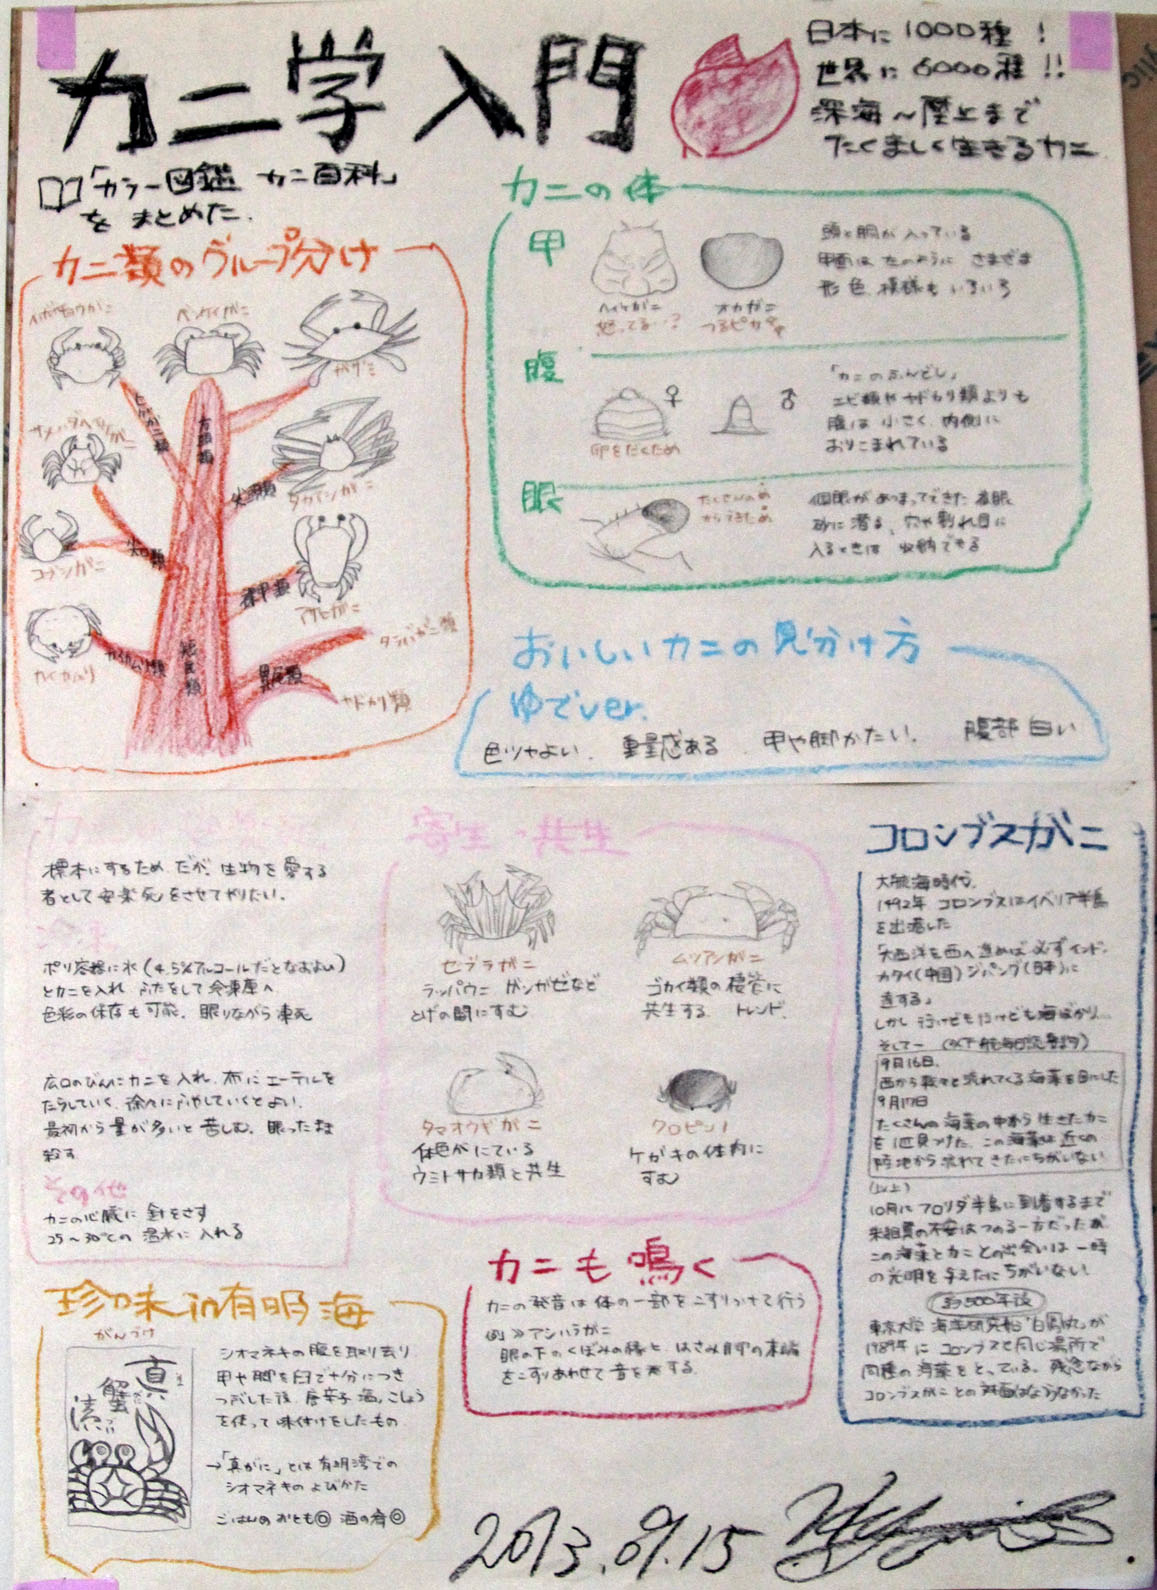 カニ学入門
日本に1000種！
世界に6000種!!
深海〜陸上まで
たくましく生きるカニ
「カラー図鑑 カニ百科」
をまとめた.
カニ類のグループ分け
ベンケイガニ
ガザミ
サメハダヘイケガニ
タカアシガニ
コブシガニ
アサヒガニ
カイカムリ
カイカムリ類
尖口類
方頭類
異尾類
タラバガニ類
ヤドカリ類
カニの体
甲
ヘイケガニ
怒ってる!?
オカガニ
つるピカ
頭と胴が入っている
甲面は たのように さまざま
形 色 模様も いろいろ
腹
♀
卵をだくため
♂
「カニのふんどし」
エビ類やヤドカリ類よりも
腹は 小さく、内側に
おりこまれている
眼
個眼があつまってできた 複眼
砂に潜る、穴や割れ目に
入るときは 収納できる
おいしいカニの見分け方
ゆでver.
色ツヤよい. 重量感ある. 甲や脚かたい. 腹部白い
標本にするため だが、生物を愛する
者として 安楽死をさせてやりたい.
冷凍
ポリ容器に水(4.5%アルコールだとなおよい)
とカニを入れ ふたをして 冷凍庫へ
色彩の保存も可能. 眠りながら凍死
広口のびんにカニを入れ、布にエーテルを
たらしていく. 徐々にふやしていくとよい.
最初から量が多いと苦しむ. 眠ったまま
殺す
その他
カニの心臓に 針をさす
25〜30℃の 温水に 入れる
寄生・共生
ゼブラガニ
ラッパウニ ガンガゼなど
とげの間にすむ
ムツアシガニ
ゴカイ類の棲管に
共生する. トレンド.
タマオウギガニ
体色がにている
ウミトサカ類と共生
クロピンノ
ケガキの体内に
すむ
コロンブスガニ
大航海時代.
1492年 コロンブスはイベリア半島
を出港した
「大西洋を西へ進めば 必ずインド.
カタイ(中国) ジパング(日本)に
達する」
しかし 行けども行けども海ばかり...
そしてー (以下航海日誌より)
9月16日.
西から続々と流れてくる海藻を目にした
9月17日
たくさんの海藻の中から 生きたカニ
を1匹見つけた. この海藻は 近くの
陸地から流れてきたにちがいない
(以上)
10月にフロリダ半島に到着するまで
乗組員の不安はつのる一方だったが
この海藻とカニとの出会いは 一時
の光明を与えたにちがいない!
約500年後
東京大学 海洋研究船「白鳳丸」が
1989年に コロンブスと同じ場所で
同種の海藻をとっている. 残念ながら
コロンブスがことの対面はならなかった
珍味in有明海
がんづけ
真
蟹
漬
シオマネキの腹を取り去り
甲や脚を臼で十分につき
つぶした後、唐辛子 酒、こしょう
を使って味付けをしたもの
→「真がに」とは有明湾での
シオマネキのよびかた
ごはんのおとも◎ 酒の肴◎
カニも鳴く
カニの発音は体の一部をこすりつけて行う
例≫アシハラガニ
眼の下のくぼみの縁と はさみ脚の末端
をこすりあわせて音を発する.
2013.09.15